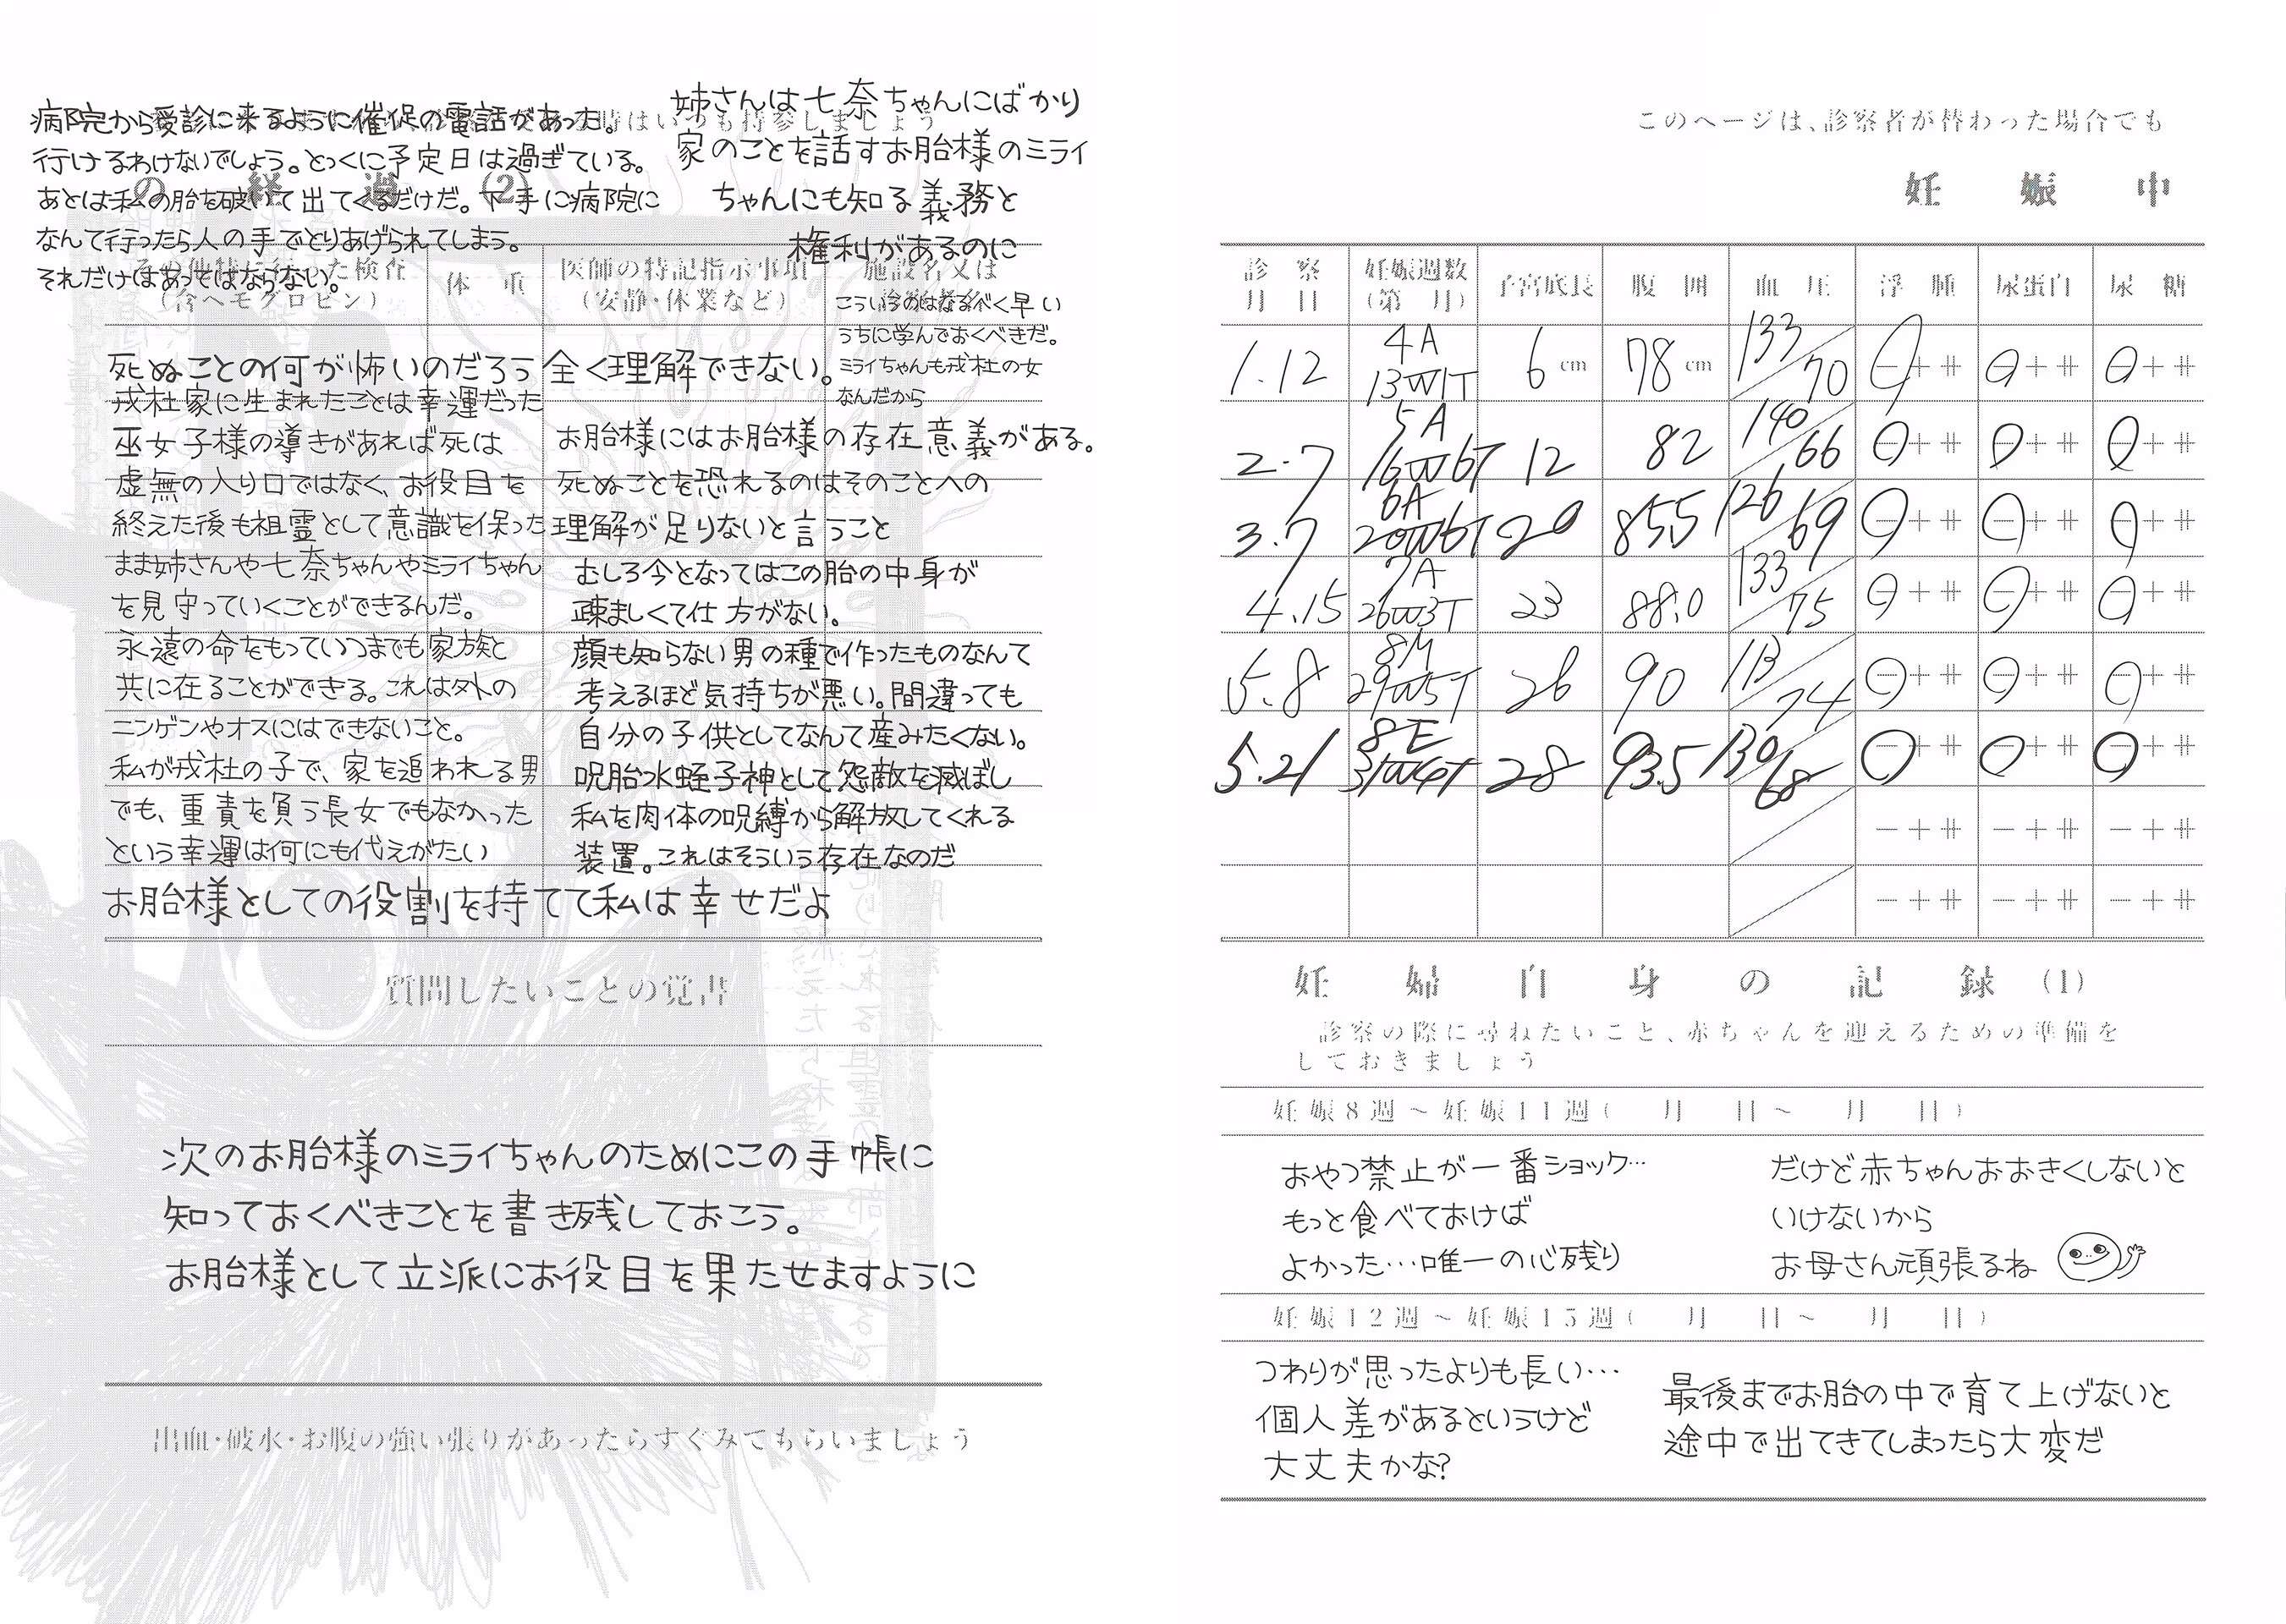 病院から受診に来るように催促の電話があった。
行けるわけないでしょう。とっくに予定日は過ぎている。
あとは私の胎を破いて出てくるだけだ。下手に病院に
なんて行ったら人の手でとりあげられてしまう。
それだけはあってはならない。
姉さんは七奈ちゃんにばかり
家のことを話すお胎様のミライ
ちゃんにも知る義務と
権利があるのに
こういうのはなるべく早い
うちに学んでおくべきだ。
ミライちゃんも戎杜の女
なんだから
時はいつも持参しましょう
の 経 過 (2)
その他特に行った検査
(含ヘモグロビン)
体 重
医師の特記指示事項
(安静・休業など)
施設名又は
死ぬことの何が怖いのだろう全く理解できない。
戎杜家に生まれたことは幸運だった
巫女子様の導きがあれば死は
虚無の入り口ではなく、お役目を
終えた後も祖霊として意識を保った
まま姉さんや七奈ちゃんやミライちゃん
を見守っていくことができるんだ。
永遠の命をもっていつまでも家族と
共に在ることができる。これは外の
ニンゲンやオスにはできないこと。
私が戎杜の子で、家を追われる男
でも、重責を負う長女でもなかった
という幸運は何にも代えがたい
お胎様にはお胎様の存在意義がある。
死ぬことを恐れるのはそのことへの
理解が足りないと言うこと
むしろ今となってはこの胎の中身が
疎ましくて仕方がない。
顔も知らない男の種で作ったものなんて
考えるほど気持ちが悪い。間違っても
自分の子供としてなんて産みたくない。
呪胎水蛭子神として怨敵を滅ぼし
私を肉体の呪縛から解放してくれる
装置。これはそういう存在なのだ
お胎様としての役割を持てて私は幸せだよ
質問したいことの覚書
次のお胎様のミライちゃんのためにこの手帳に
知っておくべきことを書き残しておこう。
お胎様として立派にお役目を果たせますように
出血・破水・お腹の強い張りがあったらすぐみてもらいましょう
このページは、診察者が替わった場合でも
妊 娠 中
診察月日 妊娠週数(第 月) 子宮底長 腹囲 血圧 浮腫 尿蛋白 尿糖
1.12 4A 13W1T 6cm 78cm 133/70 − + ⧺ − + ⧺ − + ⧺
2.7 5A 16W6T 12 82 140/66 − + ⧺ − + ⧺ − + ⧺
3.7 6A 20W6T 20 855 126/69 − + ⧺ − + ⧺ − + ⧺
4.15 7A 26W3T 23 88.0 133/75 − + ⧺ − + ⧺ − + ⧺
5.8 8M 29W5T 26 90 113/74 − + ⧺ − + ⧺ − + ⧺
5.21 8E 31W4T 28 93.5 130/68 − + ⧺ − + ⧺ − + ⧺
− + ⧺ − + ⧺ − + ⧺
− + ⧺ − + ⧺ − + ⧺
妊 婦 自 身 の 記 録 (1)
診察の際に尋ねたいこと、赤ちゃんを迎えるための準備を
しておきましょう
妊娠8週~妊娠11週( 月 日~ 月 日)
おやつ禁止が一番ショック…
もっと食べておけば
よかった…唯一の心残り
だけど赤ちゃんおおきくしないと
いけないから
お母さん頑張るね
妊娠12週~妊娠15週( 月 日~ 月 日)
つわりが思ったよりも長い…
個人差があるというけど
大丈夫かな?
最後までお胎の中で育て上げないと
途中で出てきてしまったら大変だ